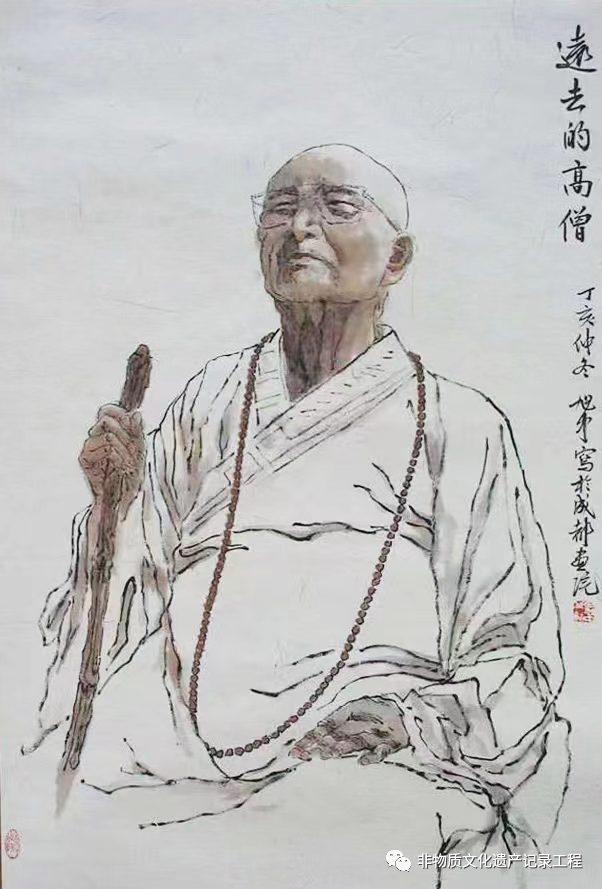 遠去的高僧
丁亥仲冬 旭東寫於成都畫院
非物质文化遗产记录工程